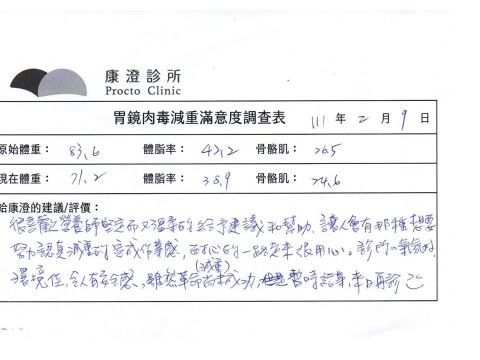 康澄診所
Procto Clinic
胃鏡肉毒減重滿意度調查表 111 年 2 月 9 日
原始體重： 83.6 體脂率： 43.2 骨骼肌： 26.5
現在體重： 71.2 體脂率： 38.9 骨骼肌： 24.6
給康澄的建議/評價：
很喜歡營養師堅定而又溫柔的給予建議和幫助、讓人會有那種想要
努力認真減重的完成作業感，一路走來很用心。診所氣氛好
環境佳，令人有安全感、雖然(減重)革命尚未成功，暫時結束，來日再診